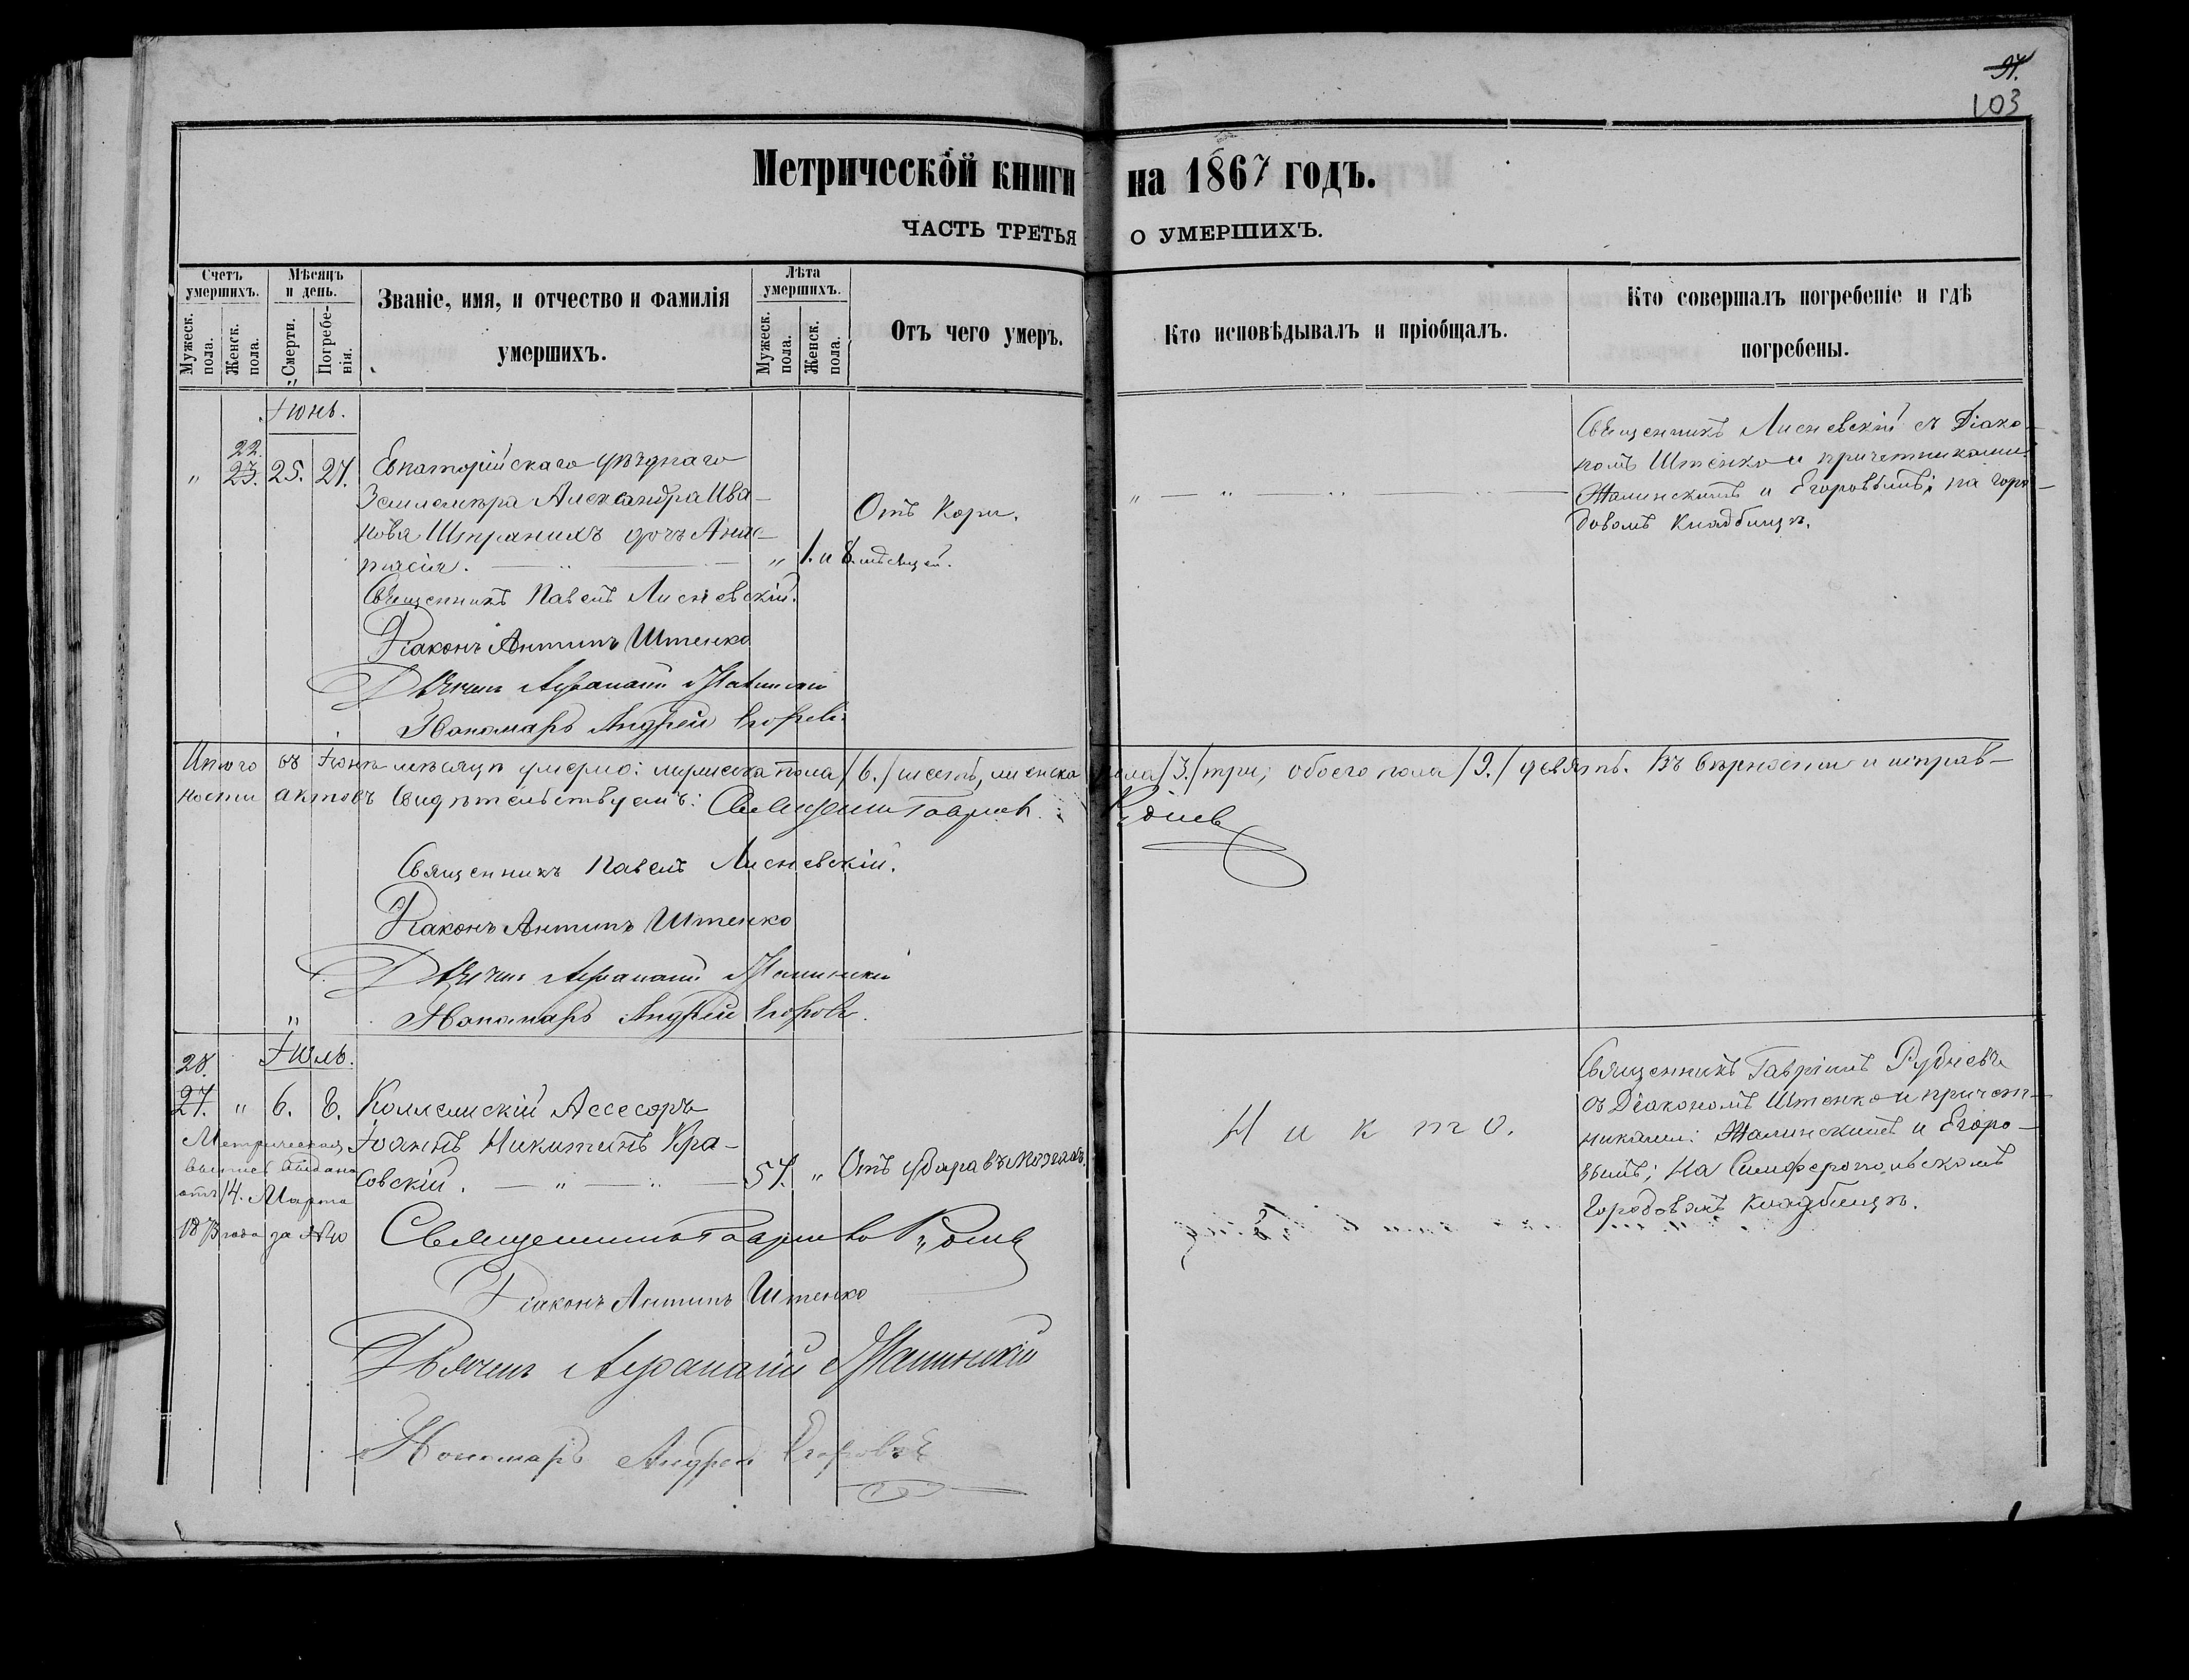 97.
103
Метрической книги на 1867 годъ.
ЧАСТЬ ТРЕТЬЯ О УМЕРШИХЪ.
Счетъ умершихъ.
Мужеск. пола.
Женск. пола.
Мѣсяцъ и день.
Смерти.
Погребенія.
Званіе, имя, и отчество и фамилія
умершихъ.
Лѣта умершихъ.
Мужеск. пола.
Женск. пола.
Отъ чего умеръ.
Кто исповѣдывалъ и пріобщалъ.
Кто совершалъ погребеніе и гдѣ
погребены.
Іюнь.
22.
" 23. 25. 27. Евпаторійскаго уѣзднаго
Землемѣра Александра Ива-
нова дочь
" 1. и 8 мѣсяцей.
Отъ Кори.
Священникъ Лисневскій съ Діако-
номъ Штенко и причетниками
Жалинскимъ и Егоровымъ; на горо-
довомъ кладбищѣ.
Священникъ Павелъ Лисневскій.
Діаконъ Антипъ Штенко
Дьячекъ Афанасій Жалинскій
Пономарь Андрей Егоровъ
Итого въ Іюнѣ мѣсяцѣ умерло: мужеска пола /6./ шесть, женска пола /3./ три; обоего пола /9./ девять. Въ вѣрности и исправ-
ности актовъ свидѣтельствуемъ: Священникъ Гавріилъ Рудневъ
Священникъ Павелъ Лисневскій.
Діаконъ Антипъ Штенко
Дьячекъ Афанасій Жалинскій
Пономарь Андрей Егоровъ.
Іюль.
28.
27. " 6. 8. Коллежскій Ассесоръ
Іоаннъ Никитинъ Кра-
совскій. 57. " Отъ удара въ мозгахъ.
Метрическая
выпись выдана
отъ 14. Марта
1873 года за № 40
Никто.
Священникъ Гавріилъ Рудневъ
съ Діакономъ Штенко и причет-
никами: Жалинскимъ и Егоро-
вымъ; на Симферопольскомъ
городовомъ кладбищѣ.
Священникъ Гавріилъ Рудневъ
Діаконъ Антипъ Штенко
Дьячекъ Афанасій Жалинскій
Пономарь Андрей Егоровъ